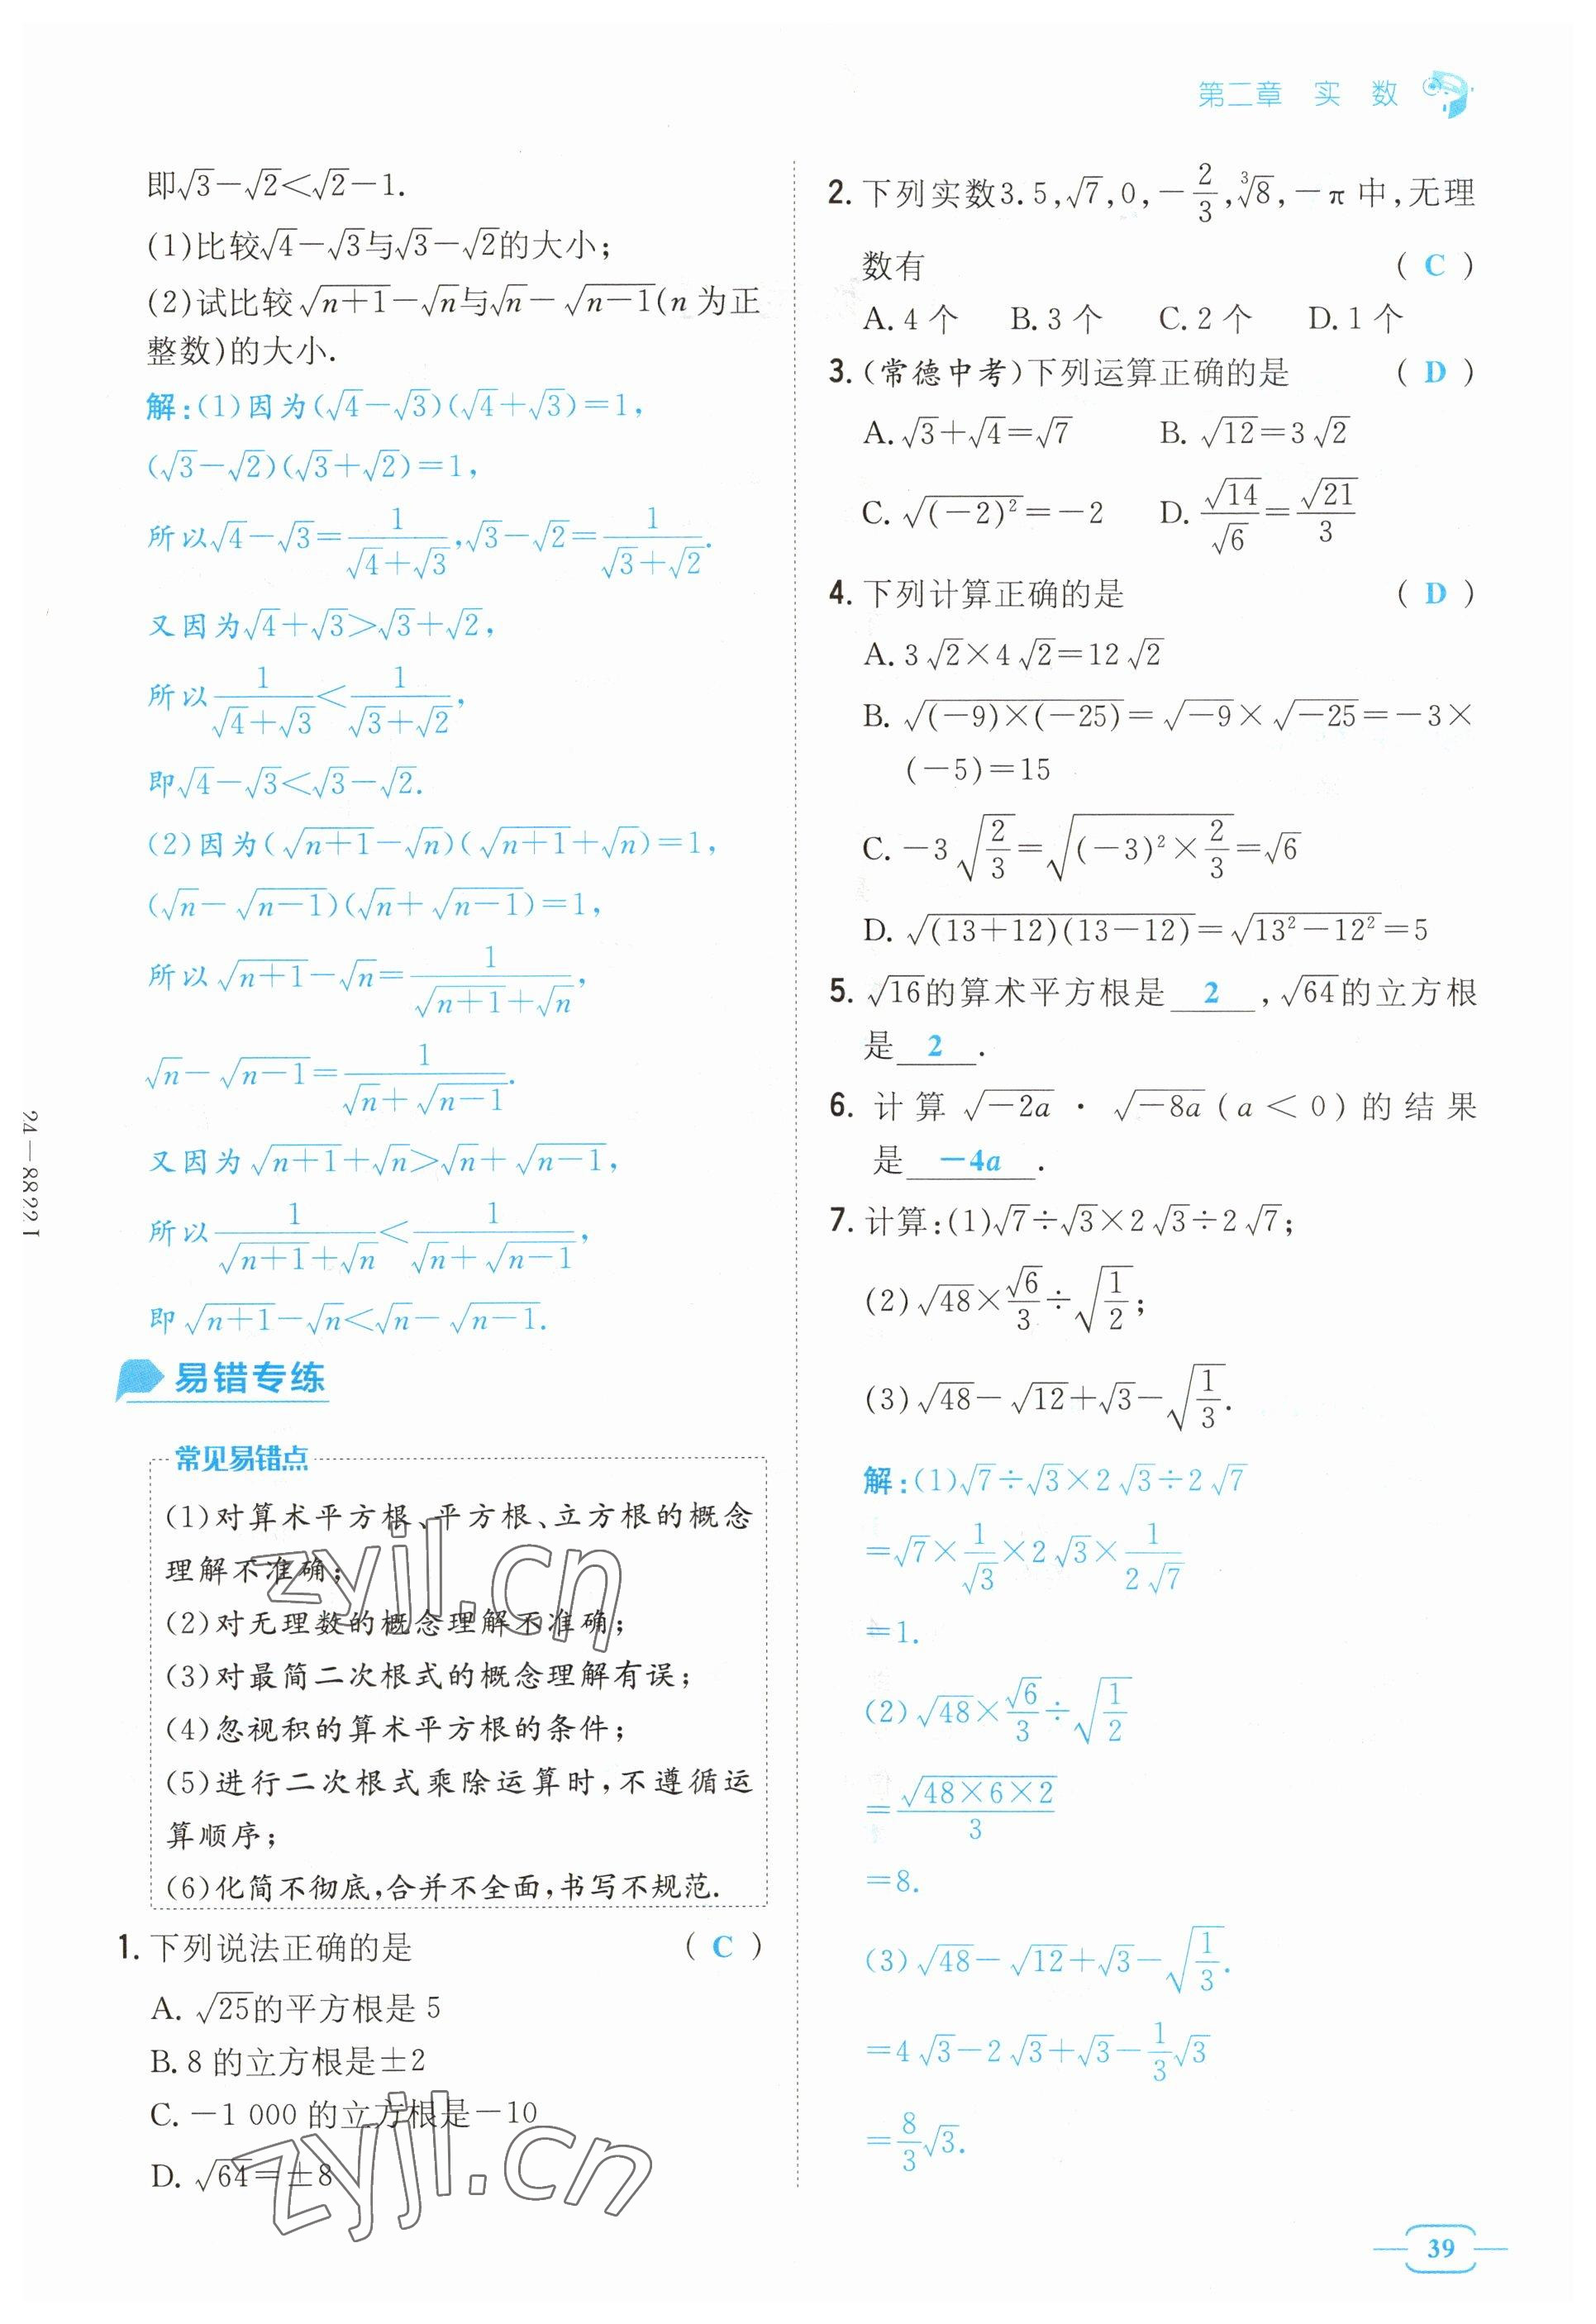 第二章 实 数
即√3-√2<√2-1.
(1)比较√4-√3与√3-√2的大小;
(2)试比较√(n+1)-√n与√n-√(n-1)(n为正
整数)的大小.
解:(1)因为(√4-√3)(√4+√3)=1,
(√3-√2)(√3+√2)=1,
所以√4-√3=1/(√4+√3),√3-√2=1/(√3+√2).
又因为√4+√3>√3+√2,
所以1/(√4+√3)<1/(√3+√2),
即√4-√3<√3-√2.
(2)因为(√(n+1)-√n)(√(n+1)+√n)=1,
(√n-√(n-1))(√n+√(n-1))=1,
所以√(n+1)-√n=1/(√(n+1)+√n),
√n-√(n-1)=1/(√n+√(n-1)).
又因为√(n+1)+√n>√n+√(n-1),
所以1/(√(n+1)+√n)<1/(√n+√(n-1)),
即√(n+1)-√n<√n-√(n-1).
易错专练
常见易错点
(1)对算术平方根、平方根、立方根的概念
理解不准确;
(2)对无理数的概念理解不准确;
(3)对最简二次根式的概念理解有误;
(4)忽视积的算术平方根的条件;
(5)进行二次根式乘除运算时,不遵循运
算顺序;
(6)化简不彻底,合并不全面,书写不规范.
1. 下列说法正确的是 ( C )
A. √25的平方根是5
B. 8的立方根是±2
C. -1 000的立方根是-10
D. √64=±8
2. 下列实数3.5,√7,0,-2/3,∛8,-π中,无理
数有 ( C )
A. 4个 B. 3个 C. 2个 D. 1个
3. (常德中考)下列运算正确的是 ( D )
A. √3+√4=√7 B. √12=3√2
C. √((-2)²)=-2 D. √14/√6=√21/3
4. 下列计算正确的是 ( D )
A. 3√2×4√2=12√2
B. √((-9)×(-25))=√(-9)×√(-25)=-3×
(-5)=15
C. -3√(2/3)=√((-3)²×2/3)=√6
D. √((13+12)(13-12))=√(13²-12²)=5
5. √16的算术平方根是 2 ,√64的立方根
是 2 .
6. 计算 √(-2a) · √(-8a) (a<0)的结果
是 -4a .
7. 计算:(1)√7÷√3×2√3÷2√7;
(2)√48×√6/3÷√(1/2);
(3)√48-√12+√3-√(1/3).
解:(1)√7÷√3×2√3÷2√7
=√7×1/√3×2√3×1/(2√7)
=1.
(2)√48×√6/3÷√(1/2)
=√(48×6×2)/3
=8.
(3)√48-√12+√3-√(1/3).
=4√3-2√3+√3-1/3√3
=8/3√3.
24—8822 I
zyjl.cn
zyjl.cn
39